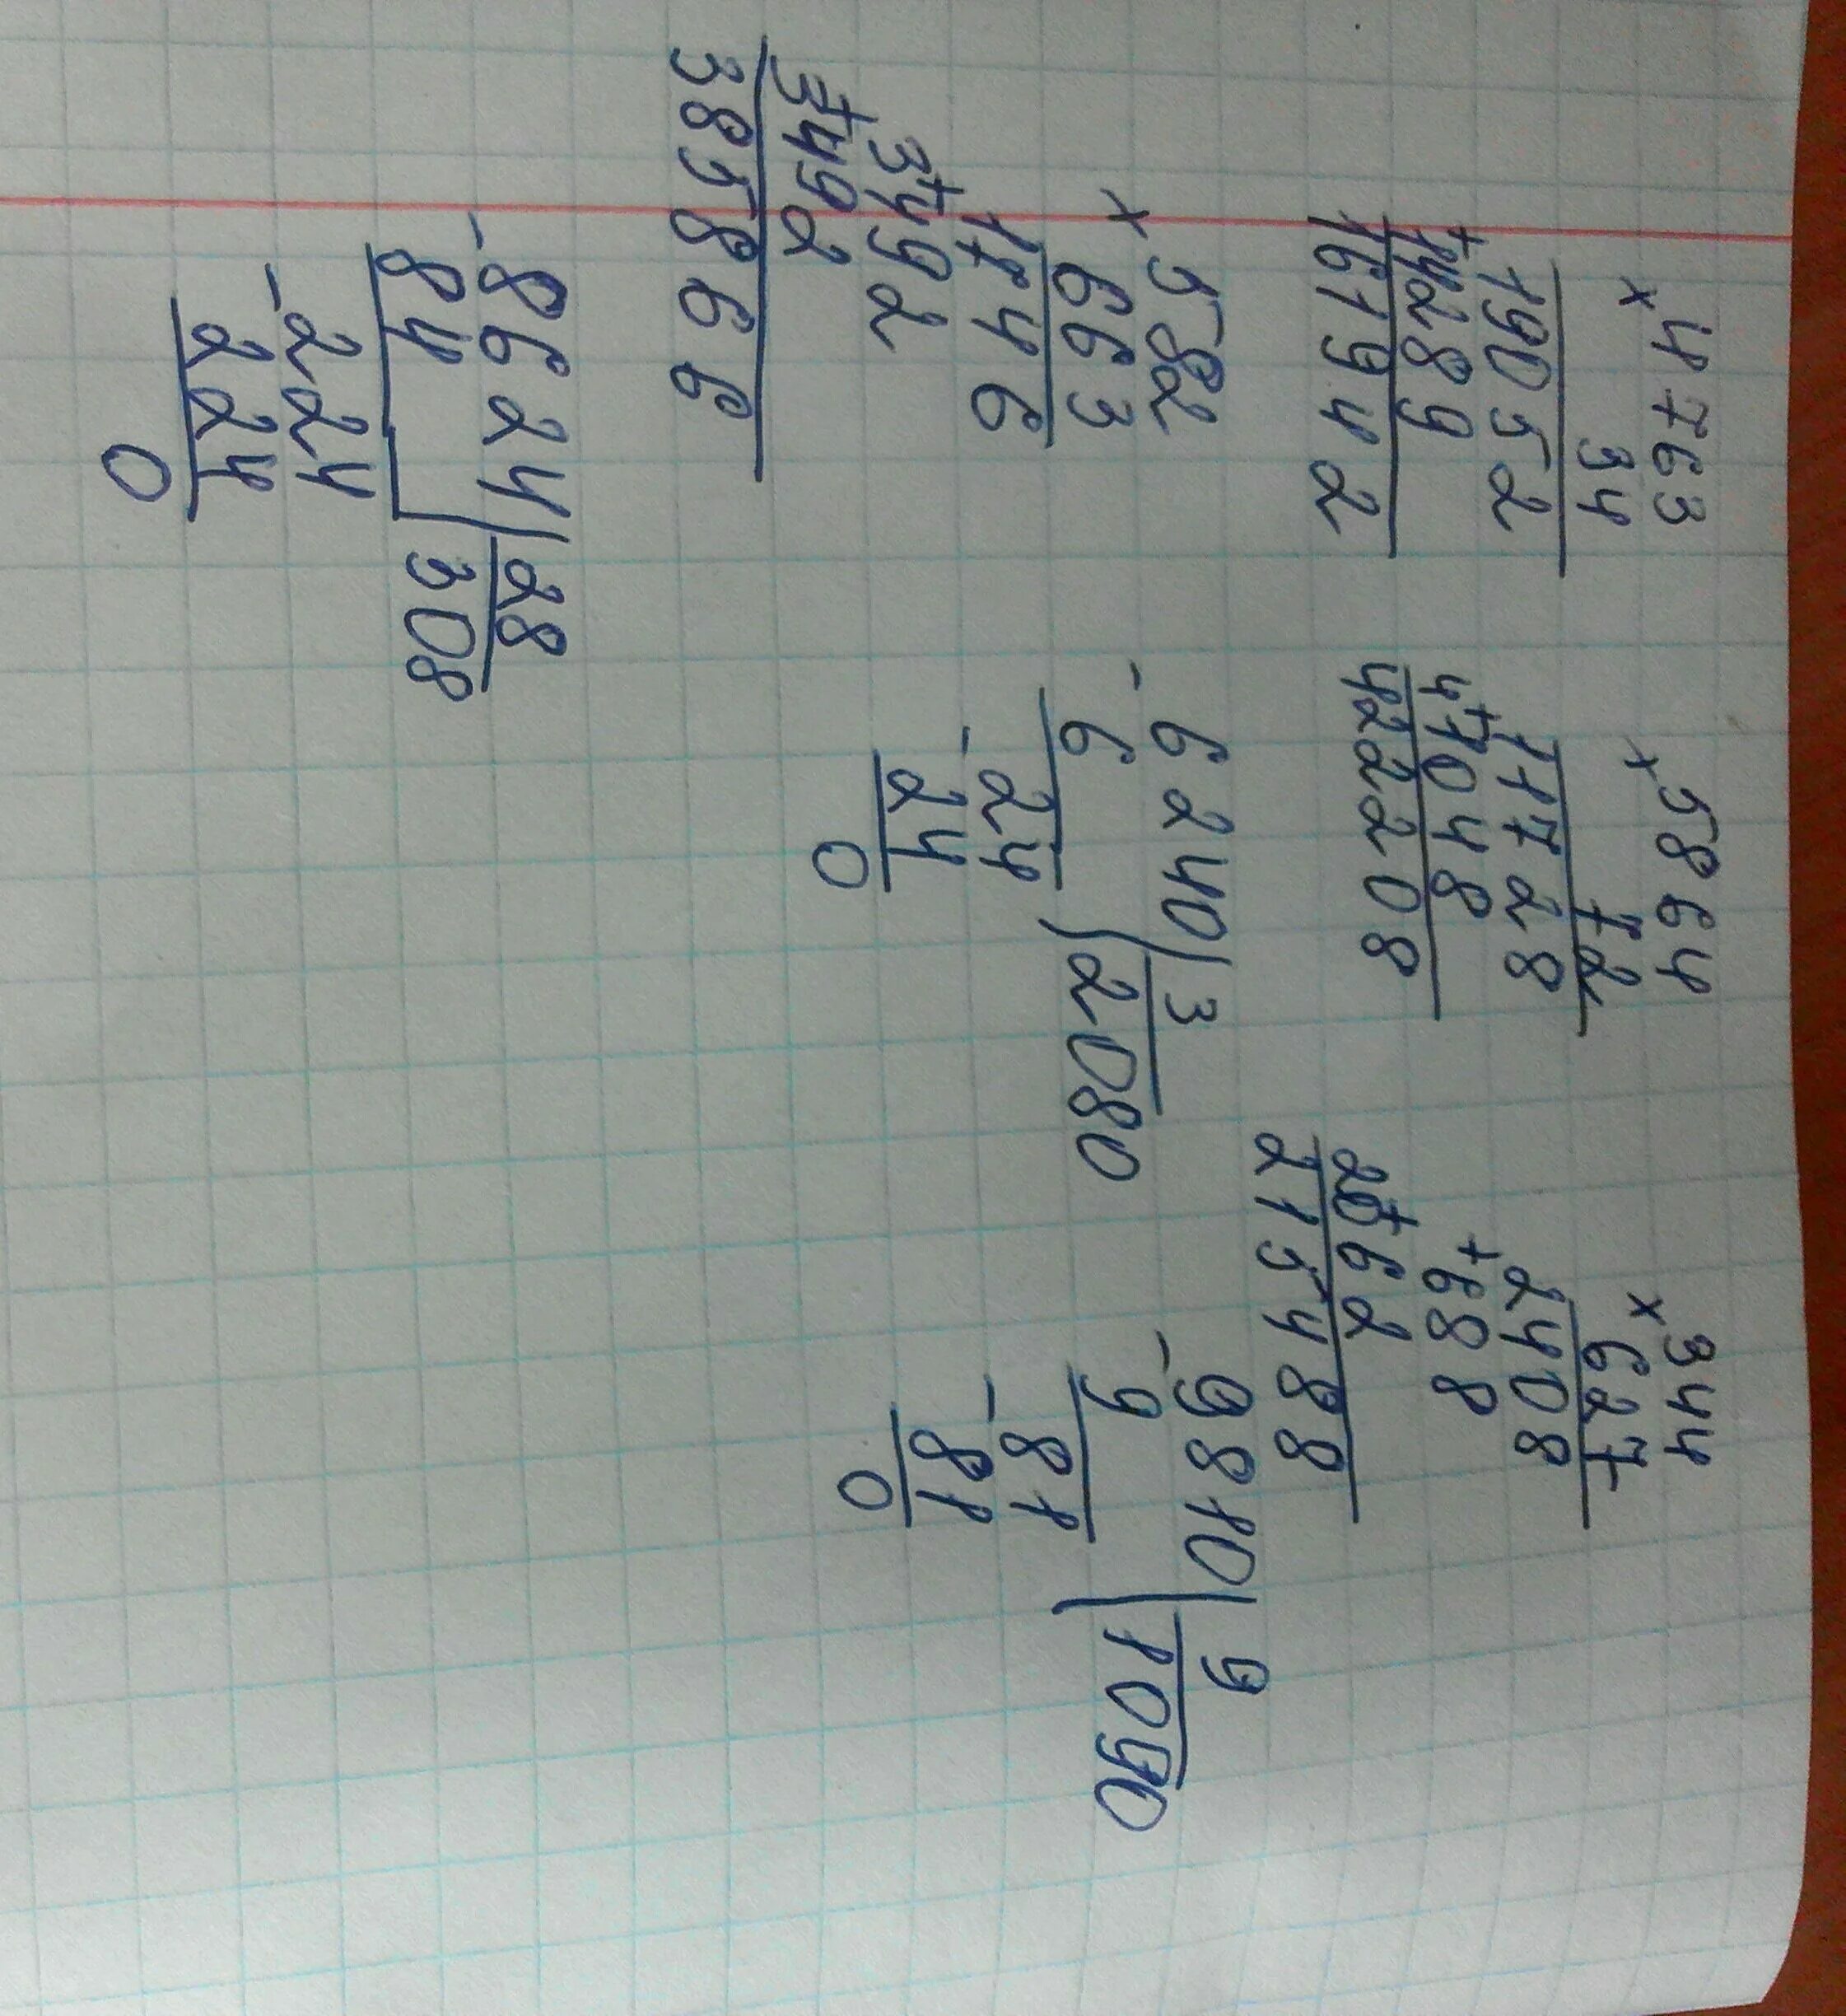 × 4763
34
19052
+ 14289
161942
× 5864
72
11728
+ 41048
422208
× 344
627
2408
+ 688
+ 2062
215488
× 582
663
1746
+ 3492
+ 3492
385866
- 6240 | 3
6 | 2080
- 24
24
0
- 9810 | 9
9 | 1090
- 81
81
0
- 8624 | 28
84 | 308
- 224
224
0